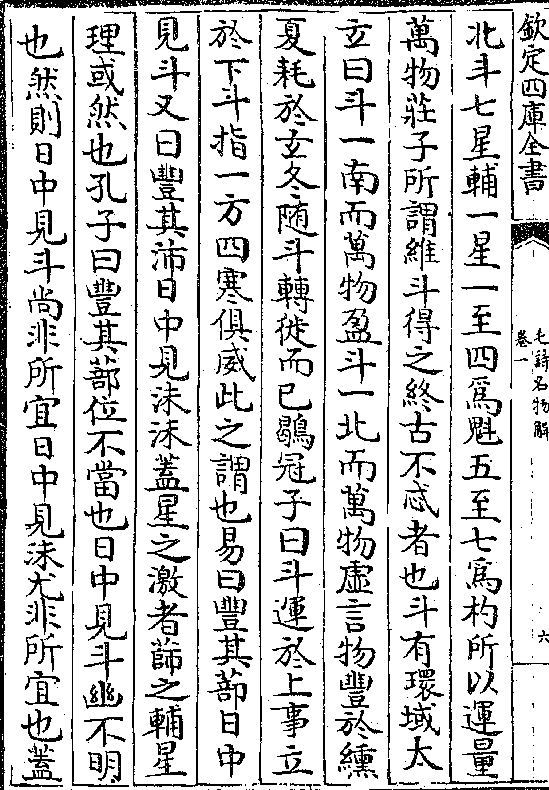 欽定四庫全書
毛詩名物解
卷一
六
北斗七星輔一星一至四爲魁五至七爲杓所以運量
萬物莊子所謂維斗得之終古不忒者也斗有環域太
玄曰斗一南而萬物盈斗一北而萬物虛言物豐於纁
夏耗於玄冬隨斗轉徙而已鶡冠子曰斗運於上事立
於下斗指一方四寒俱威此之謂也易曰豐其蔀日中
見斗又曰豐其沛日中見沬沬蓋星之激者蔀之輔星
理或然也孔子曰豐其蔀位不當也日中見斗幽不明
也然則日中見斗尚非所宜日中見沬尤非所宜也蓋